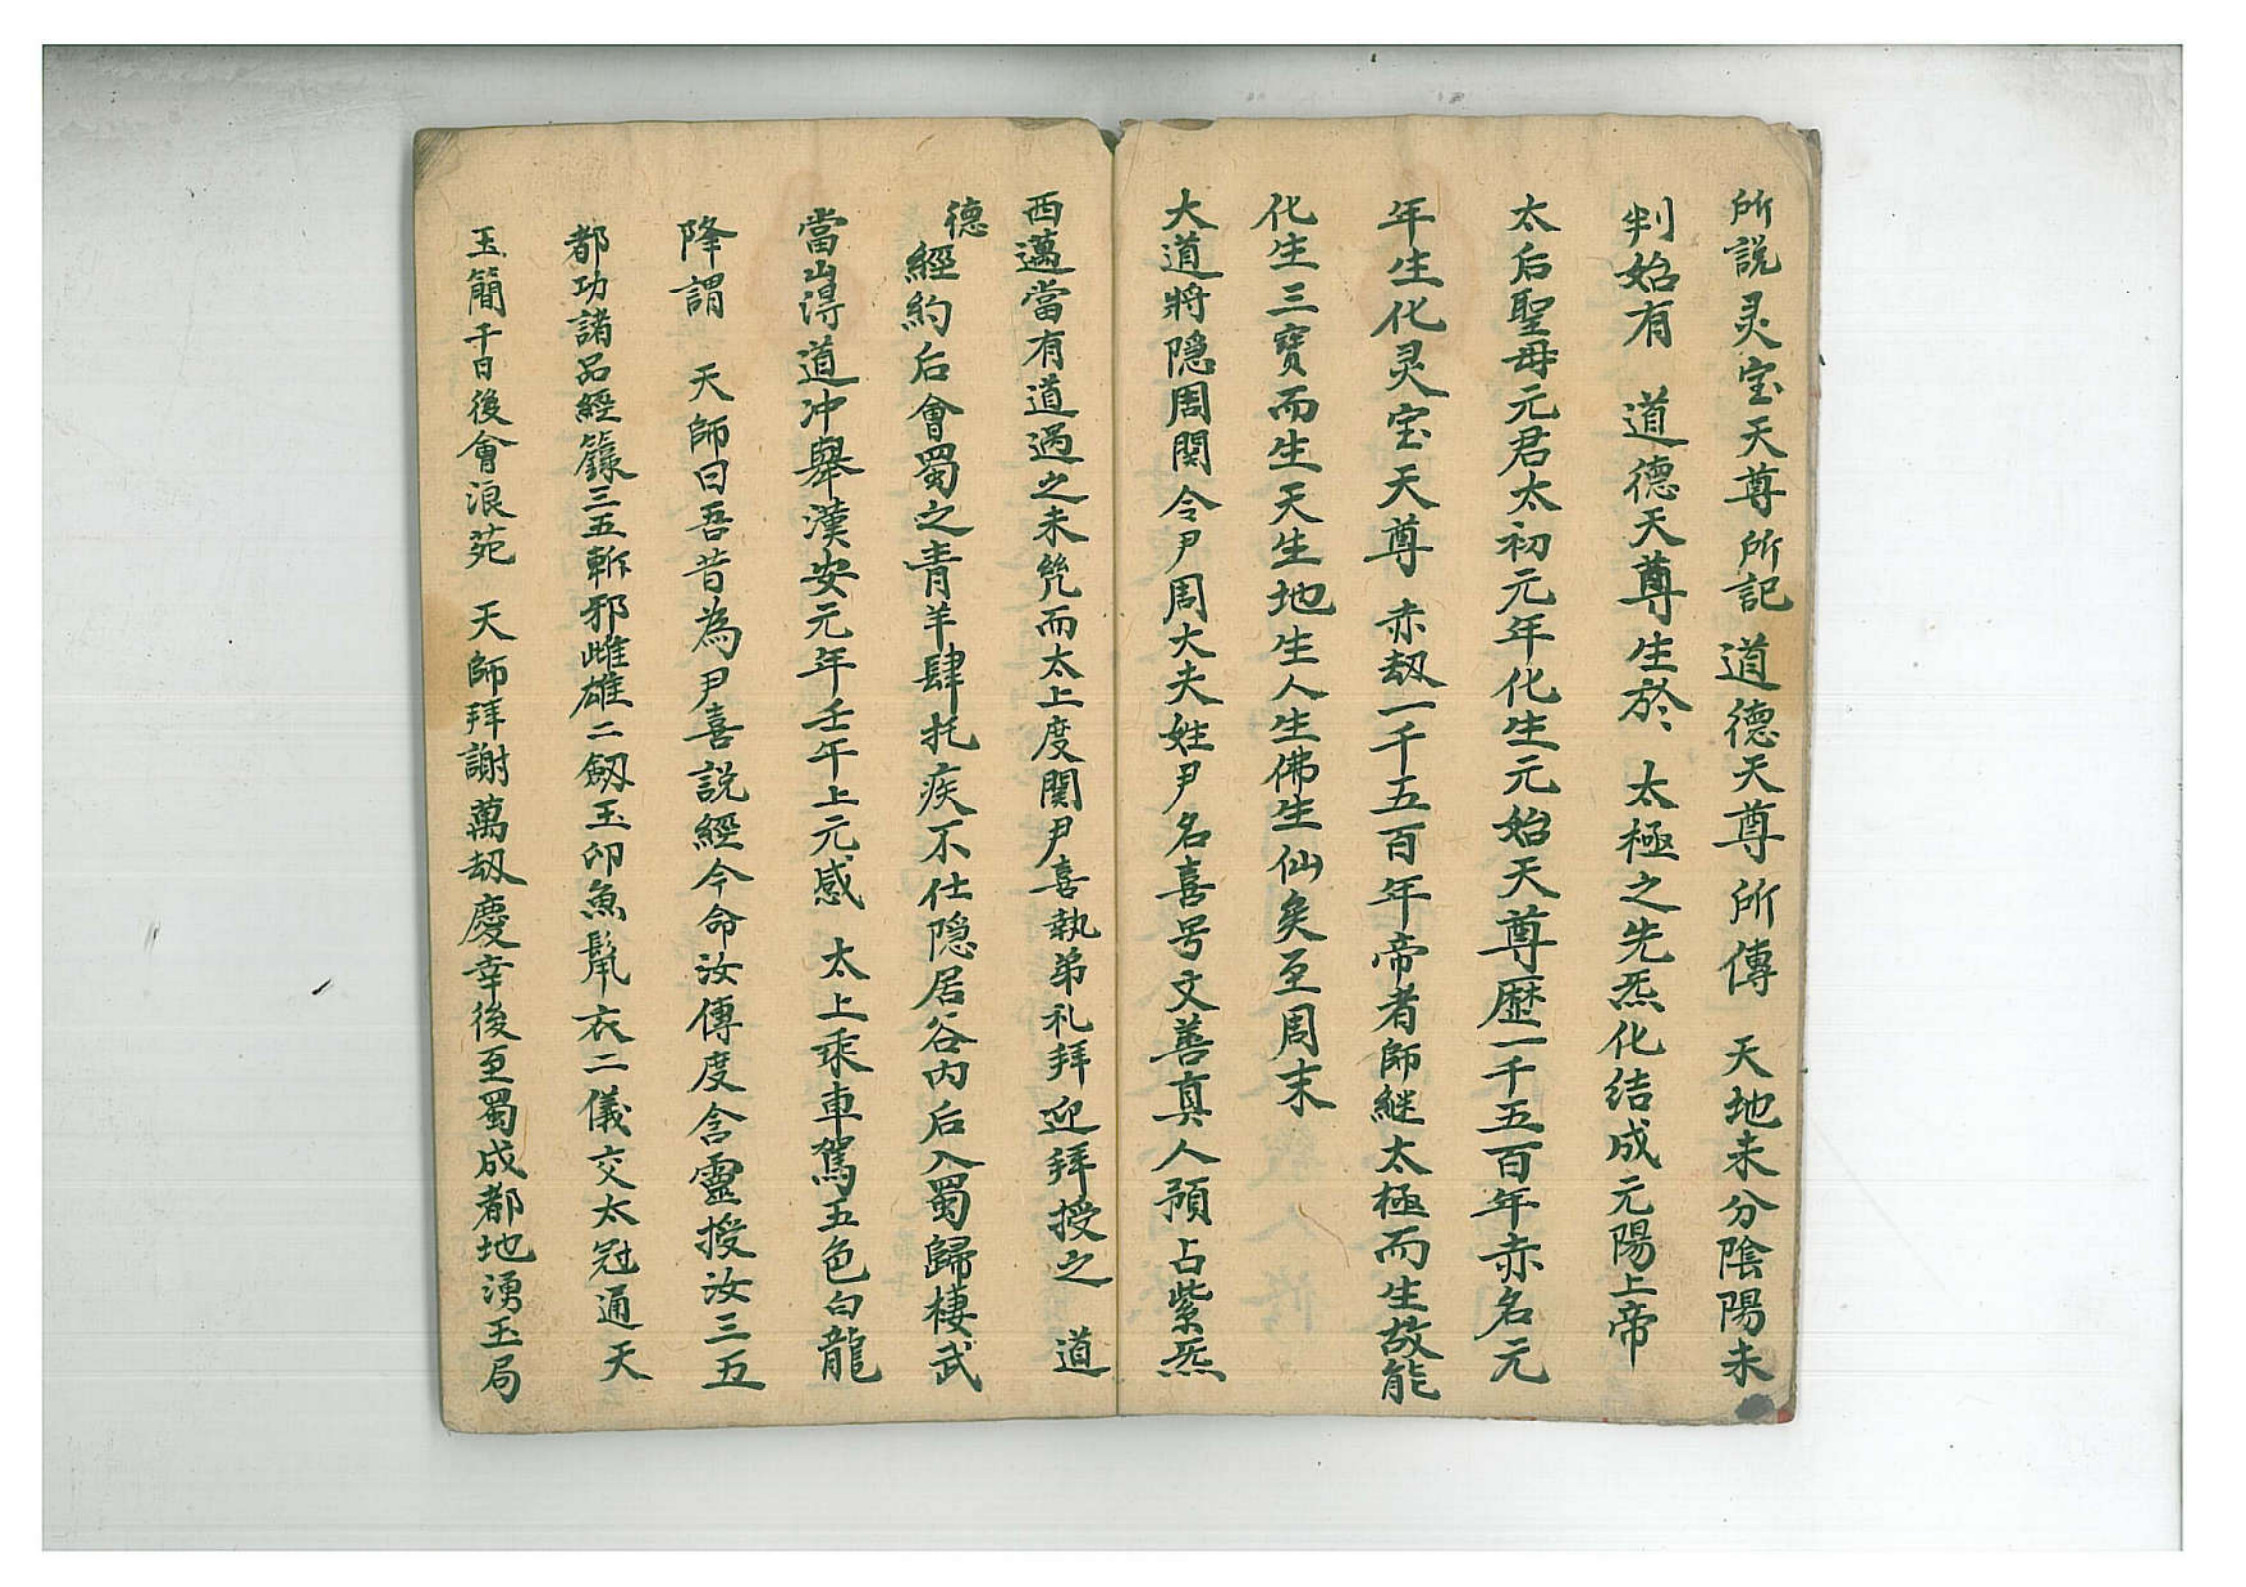 所說灵宝天尊所記道德天尊所傳 天地未分陰陽未
判始有 道德天尊生於 太極之先炁化结成元陽上帝
太后聖母元君太初元年化生元始天尊歷一千五百年赤名元
年生化灵宝天尊 赤刼一千五百年帝者師継太極而生故能
化生三寶而生天生地生人生佛生仙矣至周末
大道將隠周関令尹周大夫姓尹名喜号文善真人預占紫炁
西邁當有道過之未幾而太上度関尹喜執弟礼拜迎拜授之 道
德經約后會蜀之青羊肆托疾不仕隠居谷内后入蜀歸棲武
當山得道冲舉漢安元年壬午上元感 太上乘車駕五色白龍
降謂 天師曰吾昔為尹喜説經今命汝傳度含靈授汝三五
都功諸品經籙三五斬邪雌雄二劔玉印魚鬣衣二儀交太冠通天
玉簡千日後會浪苑 天師拜謝萬刼慶幸後至蜀成都地湧玉局